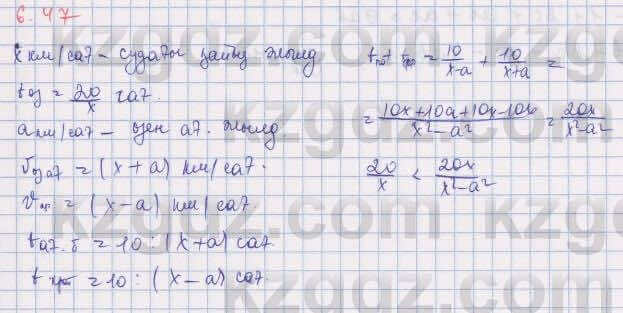 6.47
x км/сағ – судағы қайық жылд
t өз = 20/x сағ.
a км/сағ – өзен ағ. жылд.
v ағ = (x+a) км/сағ.
v қар = (x-a) км/сағ.
t ағ. б = 10 : (x+a) сағ
t қар = 10 : (x-a) сағ.
= 10/x-a + 10/x+a =
= 10x+10a+10x-10a/x²-a² = 20x/x²-a²
20/x < 20x/x²-a²
kzgdz.com